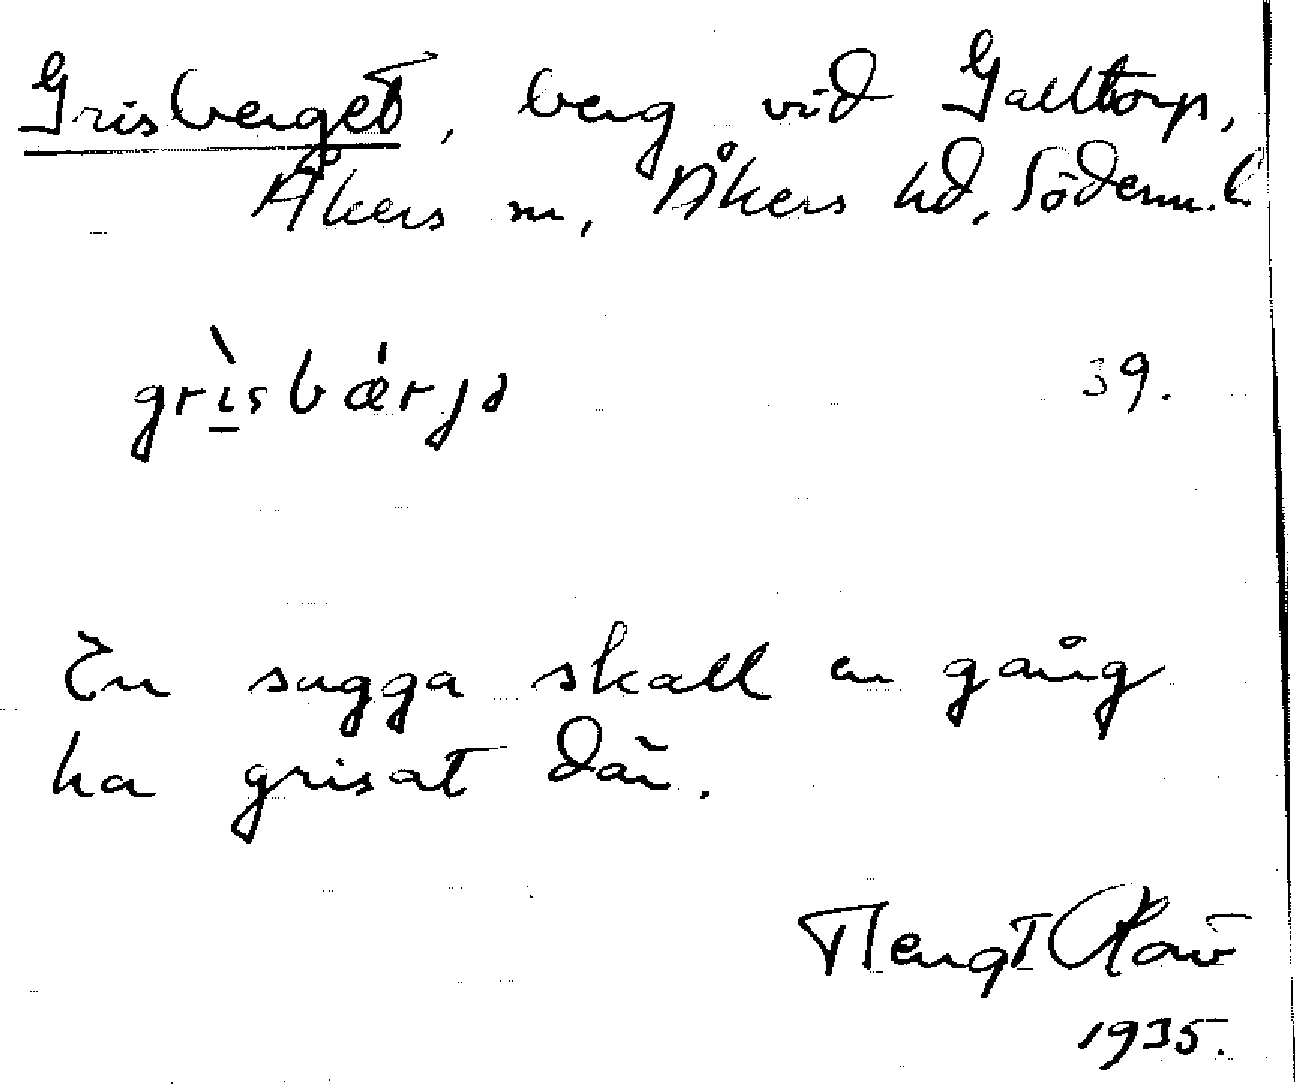 Grisberget, berg vid Galltorp,
Åkers sn, Åkers hd, Söderm.l.
grìsbærjə 39.
En sugga skall en gång
ha grisat där.
Bengt
1935.